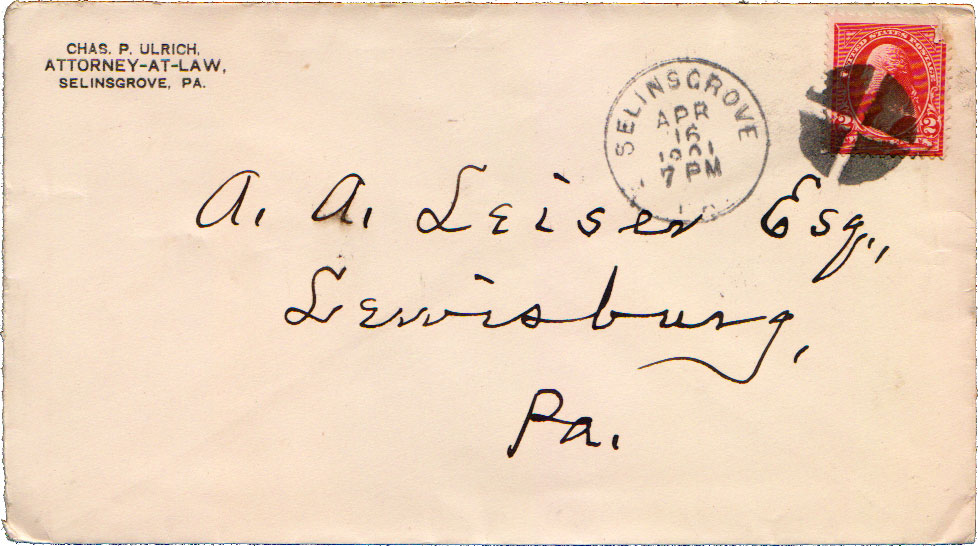 CHAS. P. ULRICH,
ATTORNEY-AT-LAW,
SELINSGROVE, PA.
SELINSGROVE
APR
16
1901
7 PM
UNITED STATES POSTAGE
2 2
A. A. Leiser Esq.,
Lewisburg,
Pa.